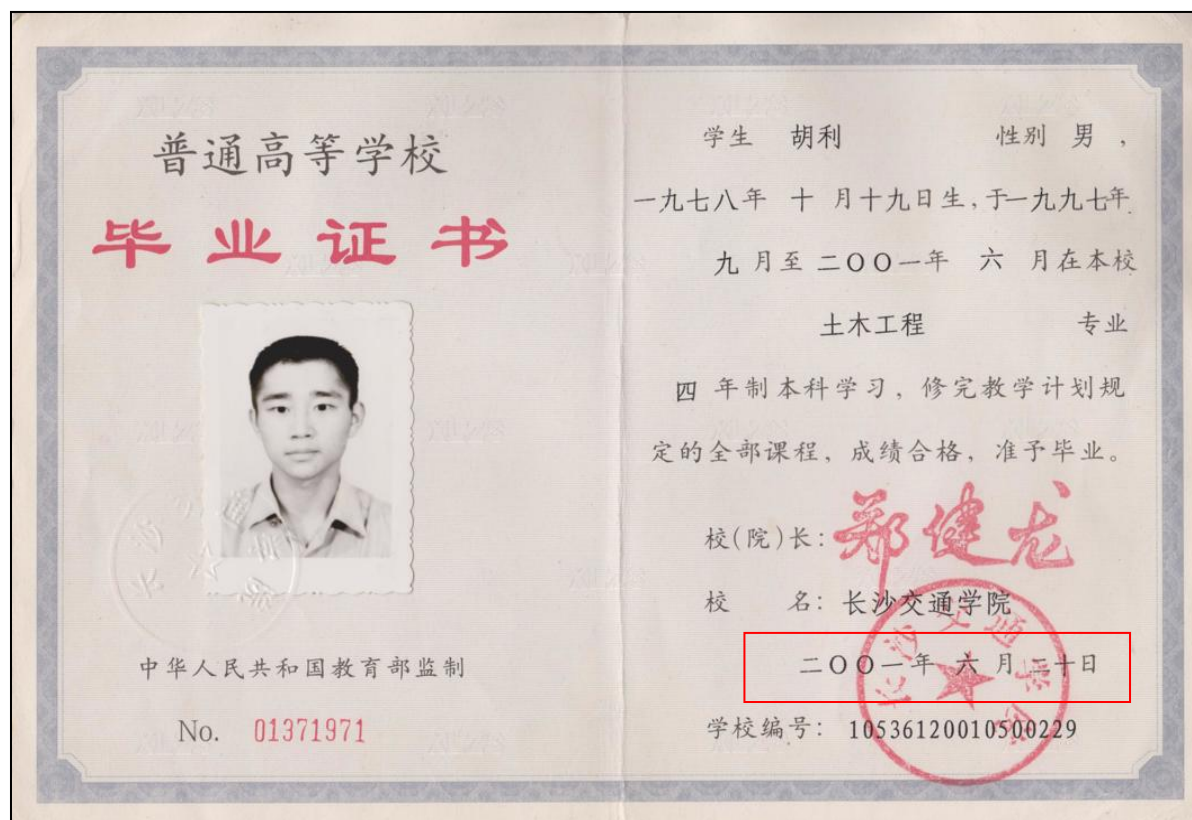 普通高等学校
毕业证书
中华人民共和国教育部监制
No. 01371971
学生 胡利 性别 男 ,
一九七八年 十 月十九日生,于一九九七年
九 月至 二〇〇一年 六 月在本校
土木工程 专业
四 年制本科学习，修完教学计划规
定的全部课程，成绩合格，准予毕业。
校(院)长: 郑健龙
校 名: 长沙交通学院
二〇〇一年 六 月 二十日
学校编号: 10536120010500229
长沙交通学院